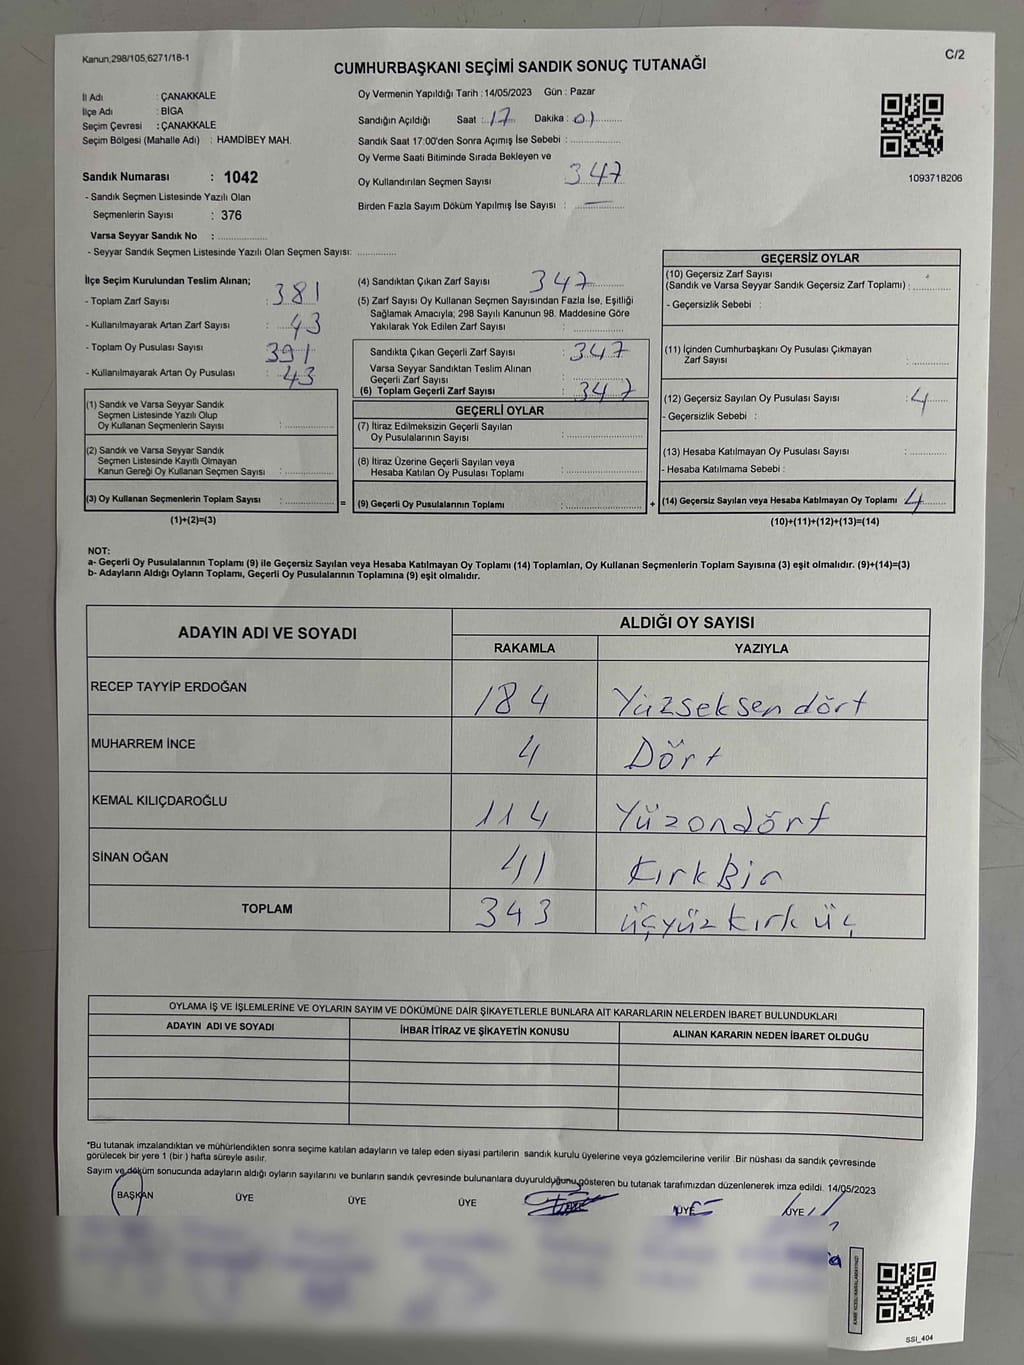 Kanun,298/105,6271/18-1
C/2
CUMHURBAŞKANI SEÇİMİ SANDIK SONUÇ TUTANAĞI
İl Adı : ÇANAKKALE
İlçe Adı : BİGA
Seçim Çevresi : ÇANAKKALE
Seçim Bölgesi (Mahalle Adı) : HAMDİBEY MAH.
Sandık Numarası : 1042
- Sandık Seçmen Listesinde Yazılı Olan
Seçmenlerin Sayısı : 376
Varsa Seyyar Sandık No :
- Seyyar Sandık Seçmen Listesinde Yazılı Olan Seçmen Sayısı:
Oy Vermenin Yapıldığı Tarih :14/05/2023 Gün : Pazar
Sandığın Açıldığı Saat : 17 Dakika : 01
Sandık Saat 17:00'den Sonra Açımış İse Sebebi :
Oy Verme Saati Bitiminde Sırada Bekleyen ve
Oy Kullandırılan Seçmen Sayısı 347
Birden Fazla Sayım Döküm Yapılmış İse Sayısı : —
1093718206
İlçe Seçim Kurulundan Teslim Alınan;
- Toplam Zarf Sayısı : 381
- Kullanılmayarak Artan Zarf Sayısı : 43
- Toplam Oy Pusulası Sayısı 391
- Kullanılmayarak Artan Oy Pusulası : 43
(1) Sandık ve Varsa Seyyar Sandık
Seçmen Listesinde Yazılı Olup
Oy Kullanan Seçmenlerin Sayısı :
(2) Sandık ve Varsa Seyyar Sandık
Seçmen Listesinde Kayıtlı Olmayan
Kanun Gereği Oy Kullanan Seçmen Sayısı :
(3) Oy Kullanan Seçmenlerin Toplam Sayısı :
(1)+(2)=(3)
=
(4) Sandıktan Çıkan Zarf Sayısı 347
(5) Zarf Sayısı Oy Kullanan Seçmen Sayısından Fazla İse, Eşitliği
Sağlamak Amacıyla; 298 Sayılı Kanunun 98. Maddesine Göre
Yakılarak Yok Edilen Zarf Sayısı :
Sandıkta Çıkan Geçerli Zarf Sayısı : 347
Varsa Seyyar Sandıktan Teslim Alınan
Geçerli Zarf Sayısı :
(6) Toplam Geçerli Zarf Sayısı : 347
GEÇERLİ OYLAR
(7) İtiraz Edilmeksizin Geçerli Sayılan
Oy Pusulalarının Sayısı :
(8) İtiraz Üzerine Geçerli Sayılan veya
Hesaba Katılan Oy Pusulası Toplamı :
(9) Geçerli Oy Pusulalarının Toplamı :
+
GEÇERSİZ OYLAR
(10) Geçersiz Zarf Sayısı
(Sandık ve Varsa Seyyar Sandık Geçersiz Zarf Toplamı) :
- Geçersizlik Sebebi :
(11) İçinden Cumhurbaşkanı Oy Pusulası Çıkmayan
Zarf Sayısı :
(12) Geçersiz Sayılan Oy Pusulası Sayısı : 4
- Geçersizlik Sebebi :
(13) Hesaba Katılmayan Oy Pusulası Sayısı :
- Hesaba Katılmama Sebebi :
(14) Geçersiz Sayılan veya Hesaba Katılmayan Oy Toplamı 4
(10)+(11)+(12)+(13)=(14)
NOT:
a- Geçerli Oy Pusulalarının Toplamı (9) ile Geçersiz Sayılan veya Hesaba Katılmayan Oy Toplamı (14) Toplamları, Oy Kullanan Seçmenlerin Toplam Sayısına (3) eşit olmalıdır. (9)+(14)=(3)
b- Adayların Aldığı Oyların Toplamı, Geçerli Oy Pusulalarının Toplamına (9) eşit olmalıdır.
ADAYIN ADI VE SOYADI ALDIĞI OY SAYISI
RAKAMLA YAZIYLA
RECEP TAYYİP ERDOĞAN 184 Yüzseksendört
MUHARREM İNCE 4 Dört
KEMAL KILIÇDAROĞLU 114 Yüzondört
SİNAN OĞAN 41 Kırk Bir
TOPLAM 343 üçyüz kırk üç
OYLAMA İŞ VE İŞLEMLERİNE VE OYLARIN SAYIM VE DÖKÜMÜNE DAİR ŞİKAYETLERLE BUNLARA AİT KARARLARIN NELERDEN İBARET BULUNDUKLARI
ADAYIN ADI VE SOYADI İHBAR İTİRAZ VE ŞİKAYETİN KONUSU ALINAN KARARIN NEDEN İBARET OLDUĞU
*Bu tutanak imzalandıktan ve mühürlendikten sonra seçime katılan adayların ve talep eden siyasi partilerin sandık kurulu üyelerine veya gözlemcilerine verilir. Bir nüshası da sandık çevresinde
görülecek bir yere 1 (bir ) hafta süreyle asılır.
Sayım ve döküm sonucunda adayların aldığı oyların sayılarını ve bunların sandık çevresinde bulunanlara duyurulduğunu gösteren bu tutanak tarafımızdan düzenlenerek imza edildi. 14/05/2023
BAŞKAN ÜYE ÜYE ÜYE ÜYE ÜYE
SSI_404